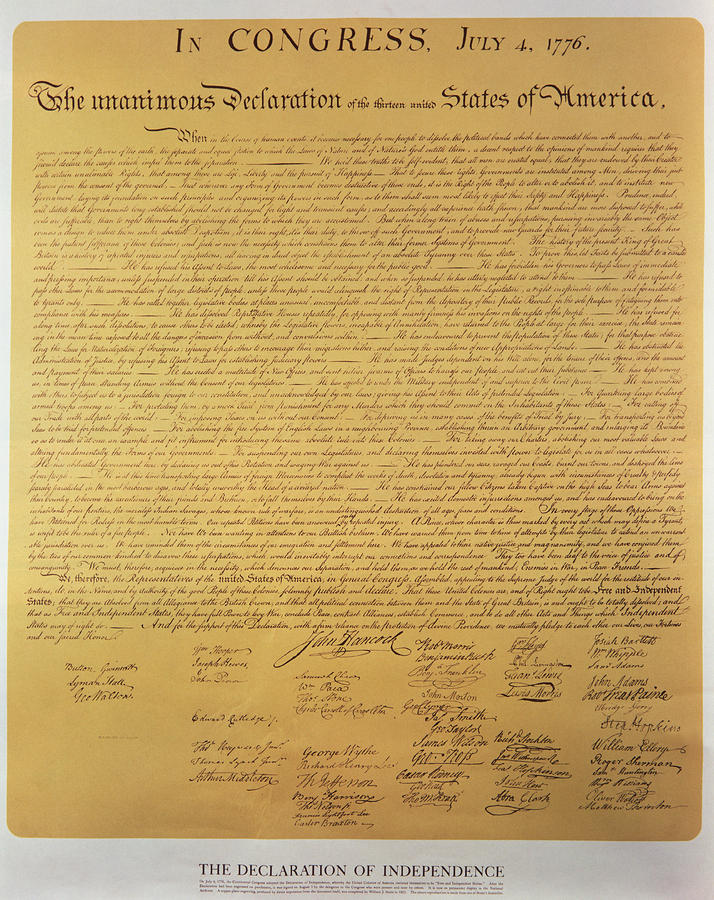 IN CONGRESS, JULY 4, 1776.
The unanimous Declaration of the thirteen united States of America,
When in the Course of human events, it becomes necessary for one people to dissolve the political bands which have connected them with another, and to
assume among the powers of the earth, the separate and equal station to which the Laws of Nature and of Nature's God entitle them, a decent respect to the opinions of mankind requires that they
should declare the causes which impel them to the separation. — We hold these truths to be self-evident, that all men are created equal, that they are endowed by their Creator
with certain unalienable Rights, that among these are Life, Liberty and the pursuit of Happiness. — That to secure these rights, Governments are instituted among Men, deriving their just
powers from the consent of the governed, — That whenever any Form of Government becomes destructive of these ends, it is the Right of the People to alter or to abolish it, and to institute new
Government, laying its foundation on such principles and organizing its powers in such form, as to them shall seem most likely to effect their Safety and Happiness. Prudence, indeed,
will dictate that Governments long established should not be changed for light and transient causes; and accordingly all experience hath shewn, that mankind are more disposed to suffer, while
evils are sufferable, than to right themselves by abolishing the forms to which they are accustomed. But when a long train of abuses and usurpations, pursuing invariably the same Object
evinces a design to reduce them under absolute Despotism, it is their right, it is their duty, to throw off such Government, and to provide new Guards for their future security. — Such has
been the patient sufferance of these Colonies; and such is now the necessity which constrains them to alter their former Systems of Government. The history of the present King of Great
Britain is a history of repeated injuries and usurpations, all having in direct object the establishment of an absolute Tyranny over these States. To prove this, let Facts be submitted to a candid
world. — He has refused his Assent to Laws, the most wholesome and necessary for the public good. — He has forbidden his Governors to pass Laws of immediate
and pressing importance, unless suspended in their operation till his Assent should be obtained; and when so suspended, he has utterly neglected to attend to them. — He has refused to
pass other Laws for the accommodation of large districts of people, unless those people would relinquish the right of Representation in the Legislature, a right inestimable to them and formidable
to tyrants only. — He has called together legislative bodies at places unusual, uncomfortable, and distant from the depository of their public Records, for the sole purpose of fatiguing them into
compliance with his measures. — He has dissolved Representative Houses repeatedly, for opposing with manly firmness his invasions on the rights of the people. — He has refused for
a long time, after such dissolutions, to cause others to be elected; whereby the Legislative powers, incapable of Annihilation, have returned to the People at large for their exercise; the State remain-
ing in the mean time exposed to all the dangers of invasion from without, and convulsions within. — He has endeavoured to prevent the population of these States; for that purpose obstruc-
ting the Laws for Naturalization of Foreigners; refusing to pass others to encourage their migrations hither, and raising the conditions of new Appropriations of Lands. — He has obstructed the
Administration of Justice, by refusing his Assent to Laws for establishing Judiciary powers. — He has made Judges dependent on his Will alone, for the tenure of their offices, and the amount
and payment of their salaries. — He has erected a multitude of New Offices, and sent hither swarms of Officers to harrass our people, and eat out their substance. — He has kept among
us, in times of peace, Standing Armies without the Consent of our legislatures. — He has affected to render the Military independent of and superior to the Civil power. — He has combined
with others to subject us to a jurisdiction foreign to our constitution, and unacknowledged by our laws; giving his Assent to their Acts of pretended Legislation: — For Quartering large bodies of
armed troops among us: — For protecting them, by a mock Trial, from punishment for any Murders which they should commit on the Inhabitants of these States: — For cutting off
our Trade with all parts of the world: — For imposing Taxes on us without our Consent: — For depriving us in many cases, of the benefits of Trial by Jury: — For transporting us beyond
Seas to be tried for pretended offences — For abolishing the free System of English Laws in a neighbouring Province, establishing therein an Arbitrary government, and enlarging its Boundaries
so as to render it at once an example and fit instrument for introducing the same absolute rule into these Colonies: — For taking away our Charters, abolishing our most valuable Laws and
altering fundamentally the Forms of our Governments: — For suspending our own Legislatures, and declaring themselves invested with power to legislate for us in all cases whatsoever. —
He has abdicated Government here, by declaring us out of his Protection and waging War against us. — He has plundered our seas, ravaged our Coasts, burnt our towns, and destroyed the lives
of our people. — He is at this time transporting large Armies of foreign Mercenaries to compleat the works of death, desolation and tyranny, already begun with circumstances of Cruelty & perfidy
scarcely paralleled in the most barbarous ages, and totally unworthy the Head of a civilized nation. — He has constrained our fellow Citizens taken Captive on the high Seas to bear Arms against
their Country, to become the executioners of their friends and Brethren, or to fall themselves by their Hands. — He has excited domestic insurrections amongst us, and has endeavoured to bring on the
inhabitants of our frontiers, the merciless Indian Savages, whose known rule of warfare, is an undistinguished destruction of all ages, sexes and conditions. In every stage of these Oppressions We
have Petitioned for Redress in the most humble terms: Our repeated Petitions have been answered only by repeated injury. A Prince, whose character is thus marked by every act which may define a Tyrant,
is unfit to be the ruler of a free people. Nor have We been wanting in attentions to our Brittish brethren. We have warned them from time to time of attempts by their legislature to extend an unwarrant-
able jurisdiction over us. We have reminded them of the circumstances of our emigration and settlement here. We have appealed to their native justice and magnanimity, and we have conjured them
by the ties of our common kindred to disavow these usurpations, which, would inevitably interrupt our connections and correspondence. They too have been deaf to the voice of justice and of
consanguinity. We must, therefore, acquiesce in the necessity, which denounces our Separation, and hold them, as we hold the rest of mankind, Enemies in War, in Peace Friends. —
We, therefore, the Representatives of the united States of America, in General Congress, Assembled, appealing to the Supreme Judge of the world for the rectitude of our in-
tentions, do, in the Name, and by Authority of the good People of these Colonies, solemnly publish and declare, That these United Colonies are, and of Right ought to be Free and Independent
States; that they are Absolved from all Allegiance to the British Crown, and that all political connection between them and the State of Great Britain, is and ought to be totally dissolved; and
that as Free and Independent States, they have full Power to levy War, conclude Peace, contract Alliances, establish Commerce, and to do all other Acts and Things which Independent
States may of right do. — And for the support of this Declaration, with a firm reliance on the Protection of divine Providence, we mutually pledge to each other our Lives, our Fortunes
and our sacred Honor.
Button Gwinnett
Lyman Hall
Geo Walton.
Wm Hooper
Joseph Hewes,
John Penn
Edward Rutledge.
Thos Heyward Junr.
Thomas Lynch Junr.
Arthur Middleton
John Hancock
Samuel Chase
Wm Paca
Thos Stone
Charles Carroll of Carrollton
George Wythe
Richard Henry Lee
Th Jefferson
Benj Harrison
Thos Nelson jr.
Francis Lightfoot Lee
Carter Braxton
Robt Morris
Benjamin Rush
Benj Franklin
John Morton
Geo Clymer
Jas Smith
Geo Taylor
James Wilson
Geo. Ross
Caesar Rodney
Geo Read
Tho M:Kean
Wm Floyd
Phil. Livingston
Frans. Lewis
Lewis Morris
Richd. Stockton
Jno Witherspoon
Fras. Hopkinson
John Hart
Abra Clark
Josiah Bartlett
Wm Whipple
Saml Adams
John Adams
Robt Treat Paine
Elbridge Gerry
Step Hopkins
William Ellery
Roger Sherman
Saml Huntington
Wm Williams
Oliver Wolcott
Matthew Thornton
THE DECLARATION OF INDEPENDENCE